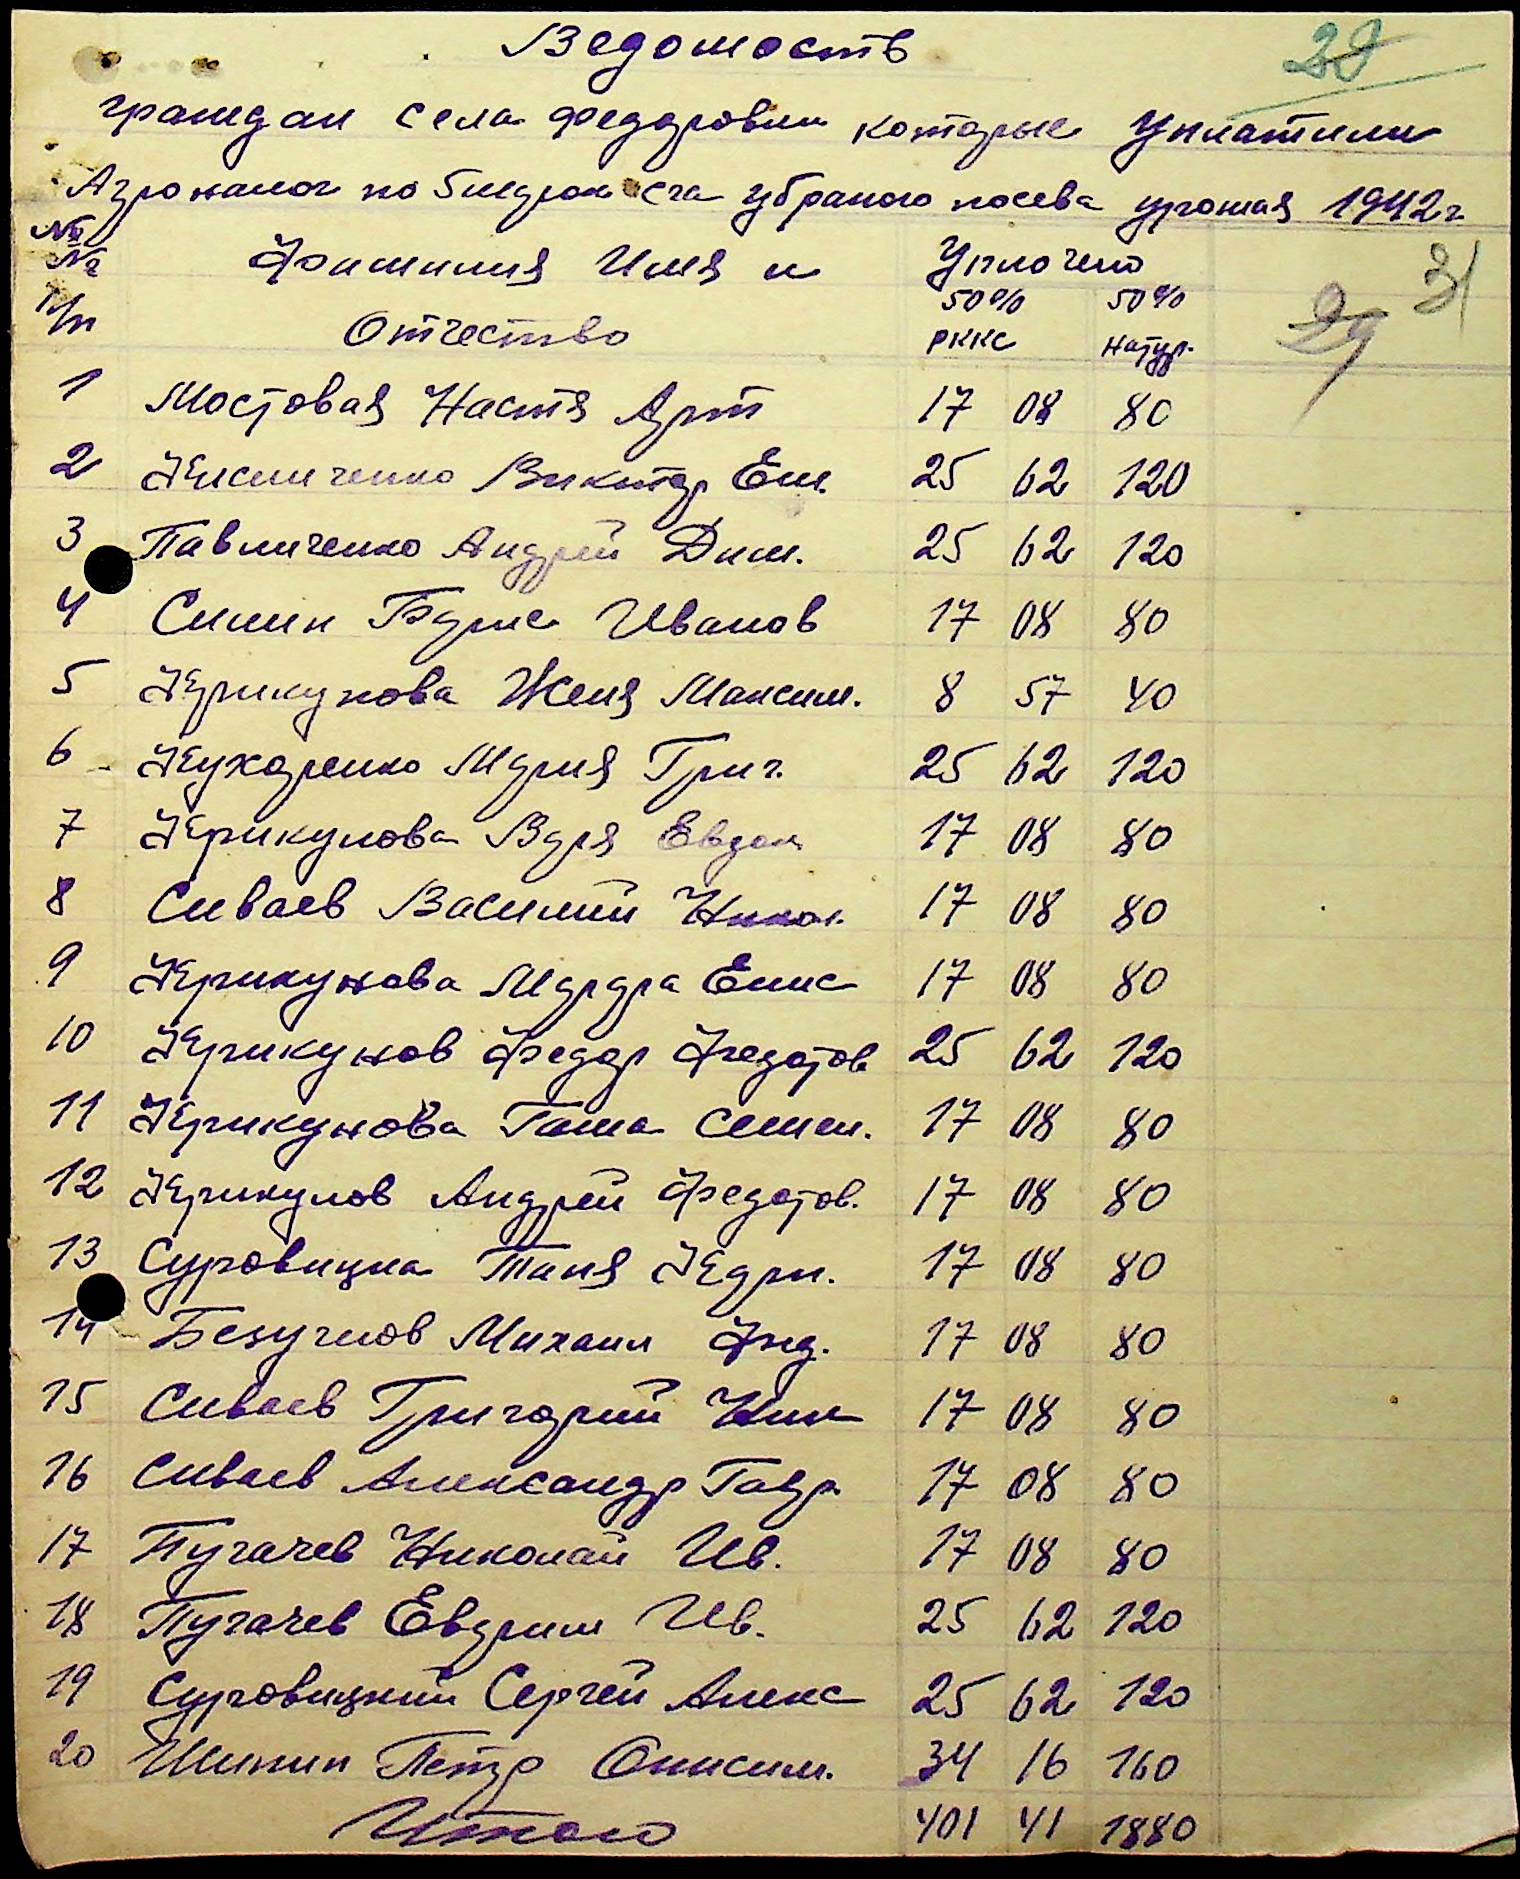 Ведомость
28
граждан села Федоровки которые Уплатили
Агроналог по 5 га убраного посева урожая 1942 г
№
№
п/п
Фамилия Имя и
Отчество
Уплочено
50% 50%
РККС натур.
31
29
1 Мостовая Настя Арт 17 08 80
2 Кисличенко Виктор Ем. 25 62 120
3 Павличенко Андрей Дим. 25 62 120
4 Симин Борис Иванов 17 08 80
5 Крикунова Женя Максим. 8 57 40
6 Кухаренко Мария Григ. 25 62 120
7 Крикунова Варя Евдок 17 08 80
8 Сиваев Василий Никол. 17 08 80
9 Крикунова Марфа Елис 17 08 80
10 Крикунов Федор Федотов 25 62 120
11 Крикунова Гаша Семен. 17 08 80
12 Крикунов Андрей Федотов. 17 08 80
13 Суровицка Таня Кдри. 17 08 80
14 Безуглов Михаил 17 08 80
15 Сиваев Григорий Ник 17 08 80
16 Сиваев Александр Гавр 17 08 80
17 Пугачев Николай Ив. 17 08 80
18 Пугачев Евдрим Ив. 25 62 120
19 Суровицкий Сергей Алекс 25 62 120
20 Шипин Петр Онисим. 34 16 160
Итого 401 41 1880